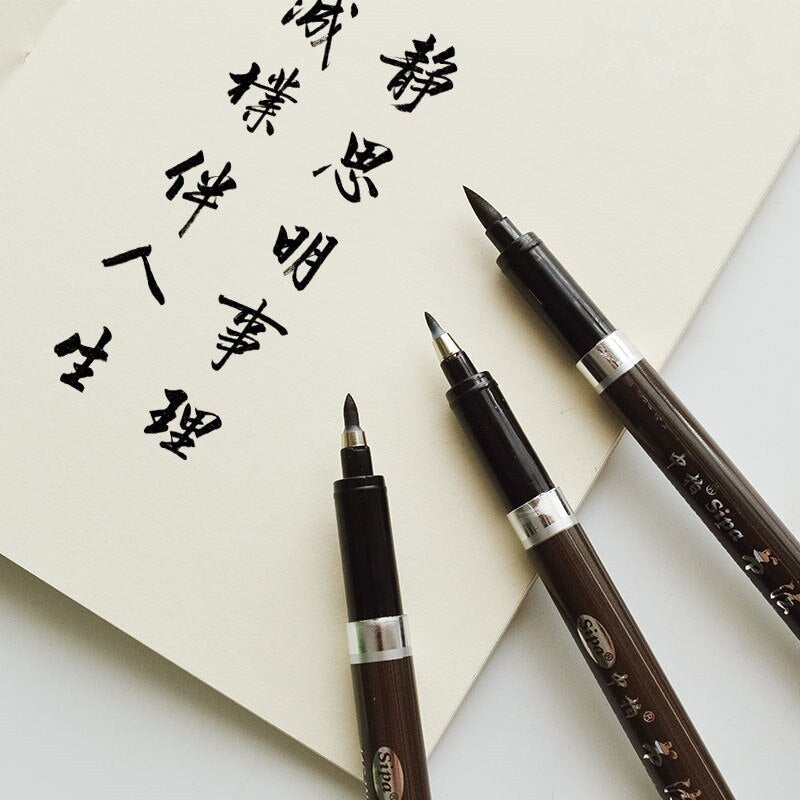 静思明事理
诚樸伴人生
中柏® Sipa 书法
Sipa® 中柏® 书法
Sipa®